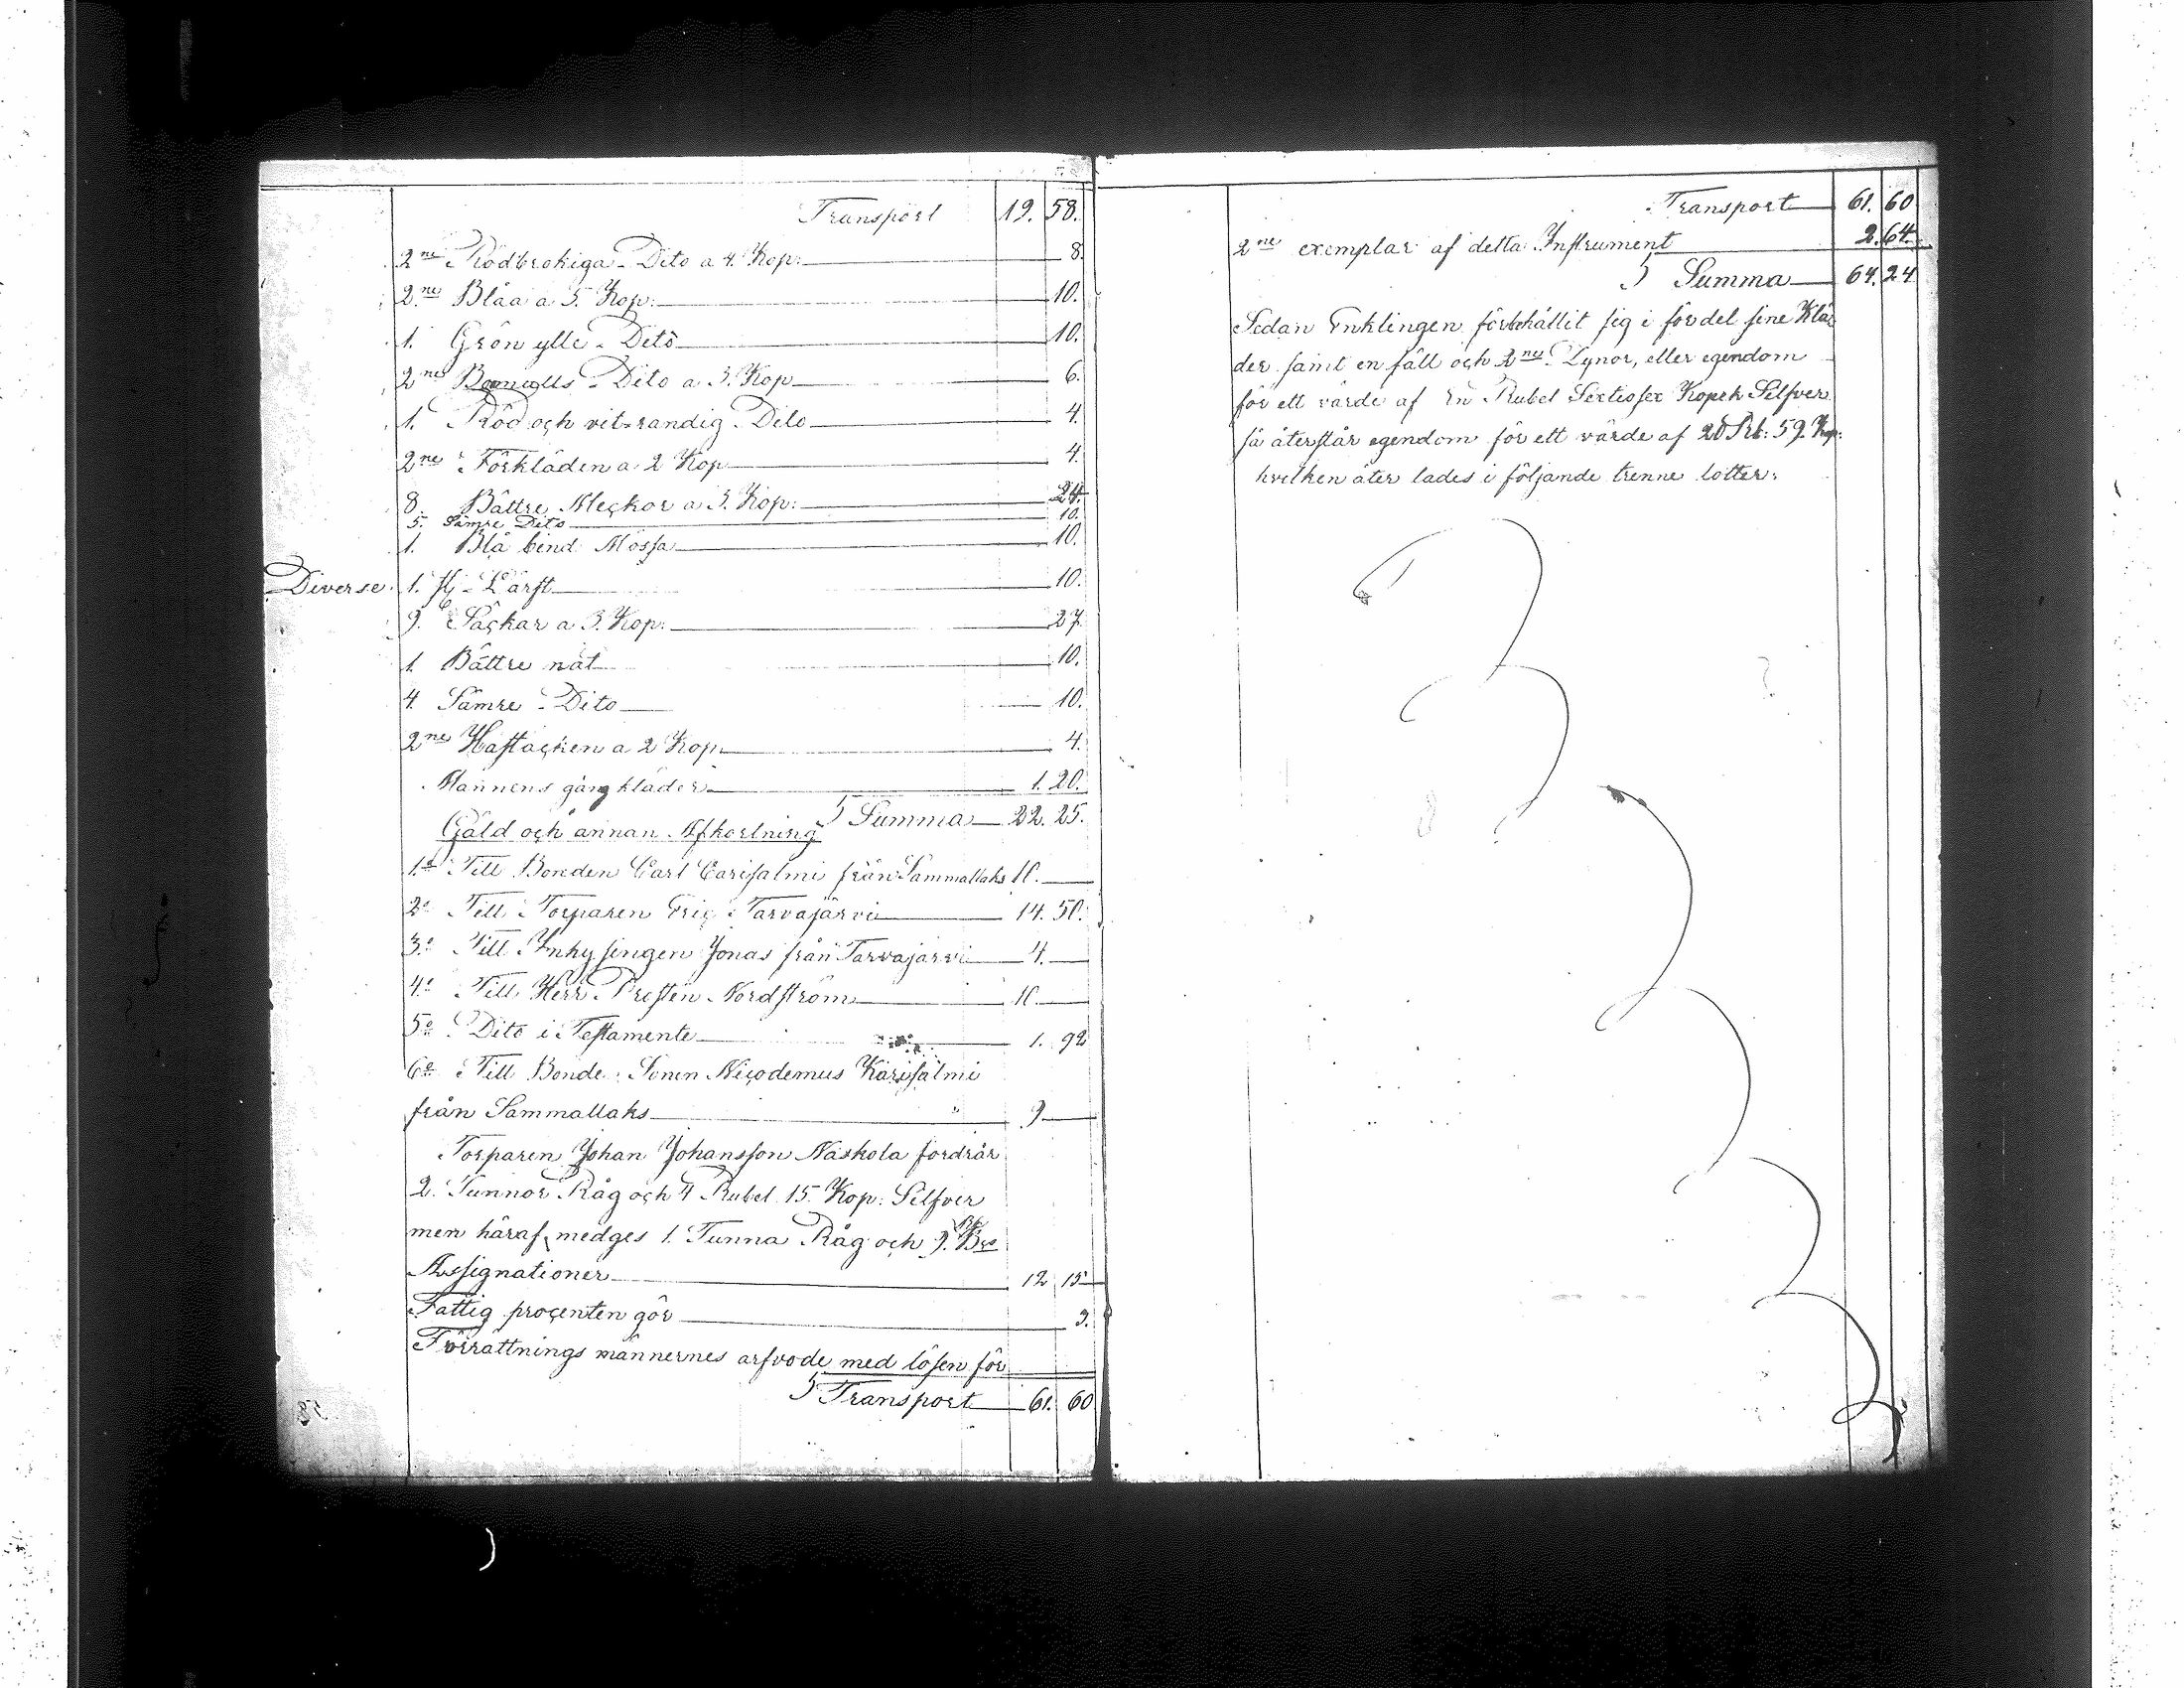 Transport 19. 58.
2ne Rödbrokiga Dito a 4. Kop: 8.
2ne Blåa a 5. Kop: 10.
1. Grön ylle Dito 10.
2ne Bomulls Dito a 3. Kop 6.
1. Röd och vit randig Dito 4.
2ne Förkläden a 2 Kop 4.
8. Bättre Meçkor a 3. Kop: 24.
5. Sämre Dito 10.
1. Blå bind Mössa 10.
Diverse. 1. Lärft 10.
9. Säçkar a 3. Kop: 27.
1. Bättre nät 10.
4. Sämre Dito 10.
2ne Häståçken a 2 Kop 4.
Mannens gångkläder 1. 20.
Summa 22. 25.
Gäld och annan Afkortning
1o Till Bonden Carl Carisalmi från Sammallaks 10.
2o Till Torparen Eriç Tarvajärvi 14. 50.
3o Till Inhysingen Jonas från Tarvajärvi 4.
4o Till Herr Prosten Nordström 10.
5o Dito i Testamente 1. 92
6o Till Bonde Sonen Niçodemus Karisalmi
från Sammallaks 9
Torparen Johan Johansson Näskola fordrar
2. Tunnor Råg och 4 Rubel 15. Kop: Silfver
men häraf medges 1. Tunna Råg och 9. Rb Bço
Assignationer 12 15
Fattig proçenten gör 3.
Förrättnings männernes arfvode med lösen för
Transport 61. 60
Transport 61. 60
2ne exemplar af detta Instrument 2. 64.
Summa 64. 24
Sedan Enklingen förbehållit sig i fördel sine Klä
der samt en fäll och 2ne Dynor, eller egendom
för ett värde af En Rubel Sextiosex Kopek Silfver
så återstår egendom för ett värde af 20 Rb: 59. Kop:
hvilken åter lades i följande trenne lotter: